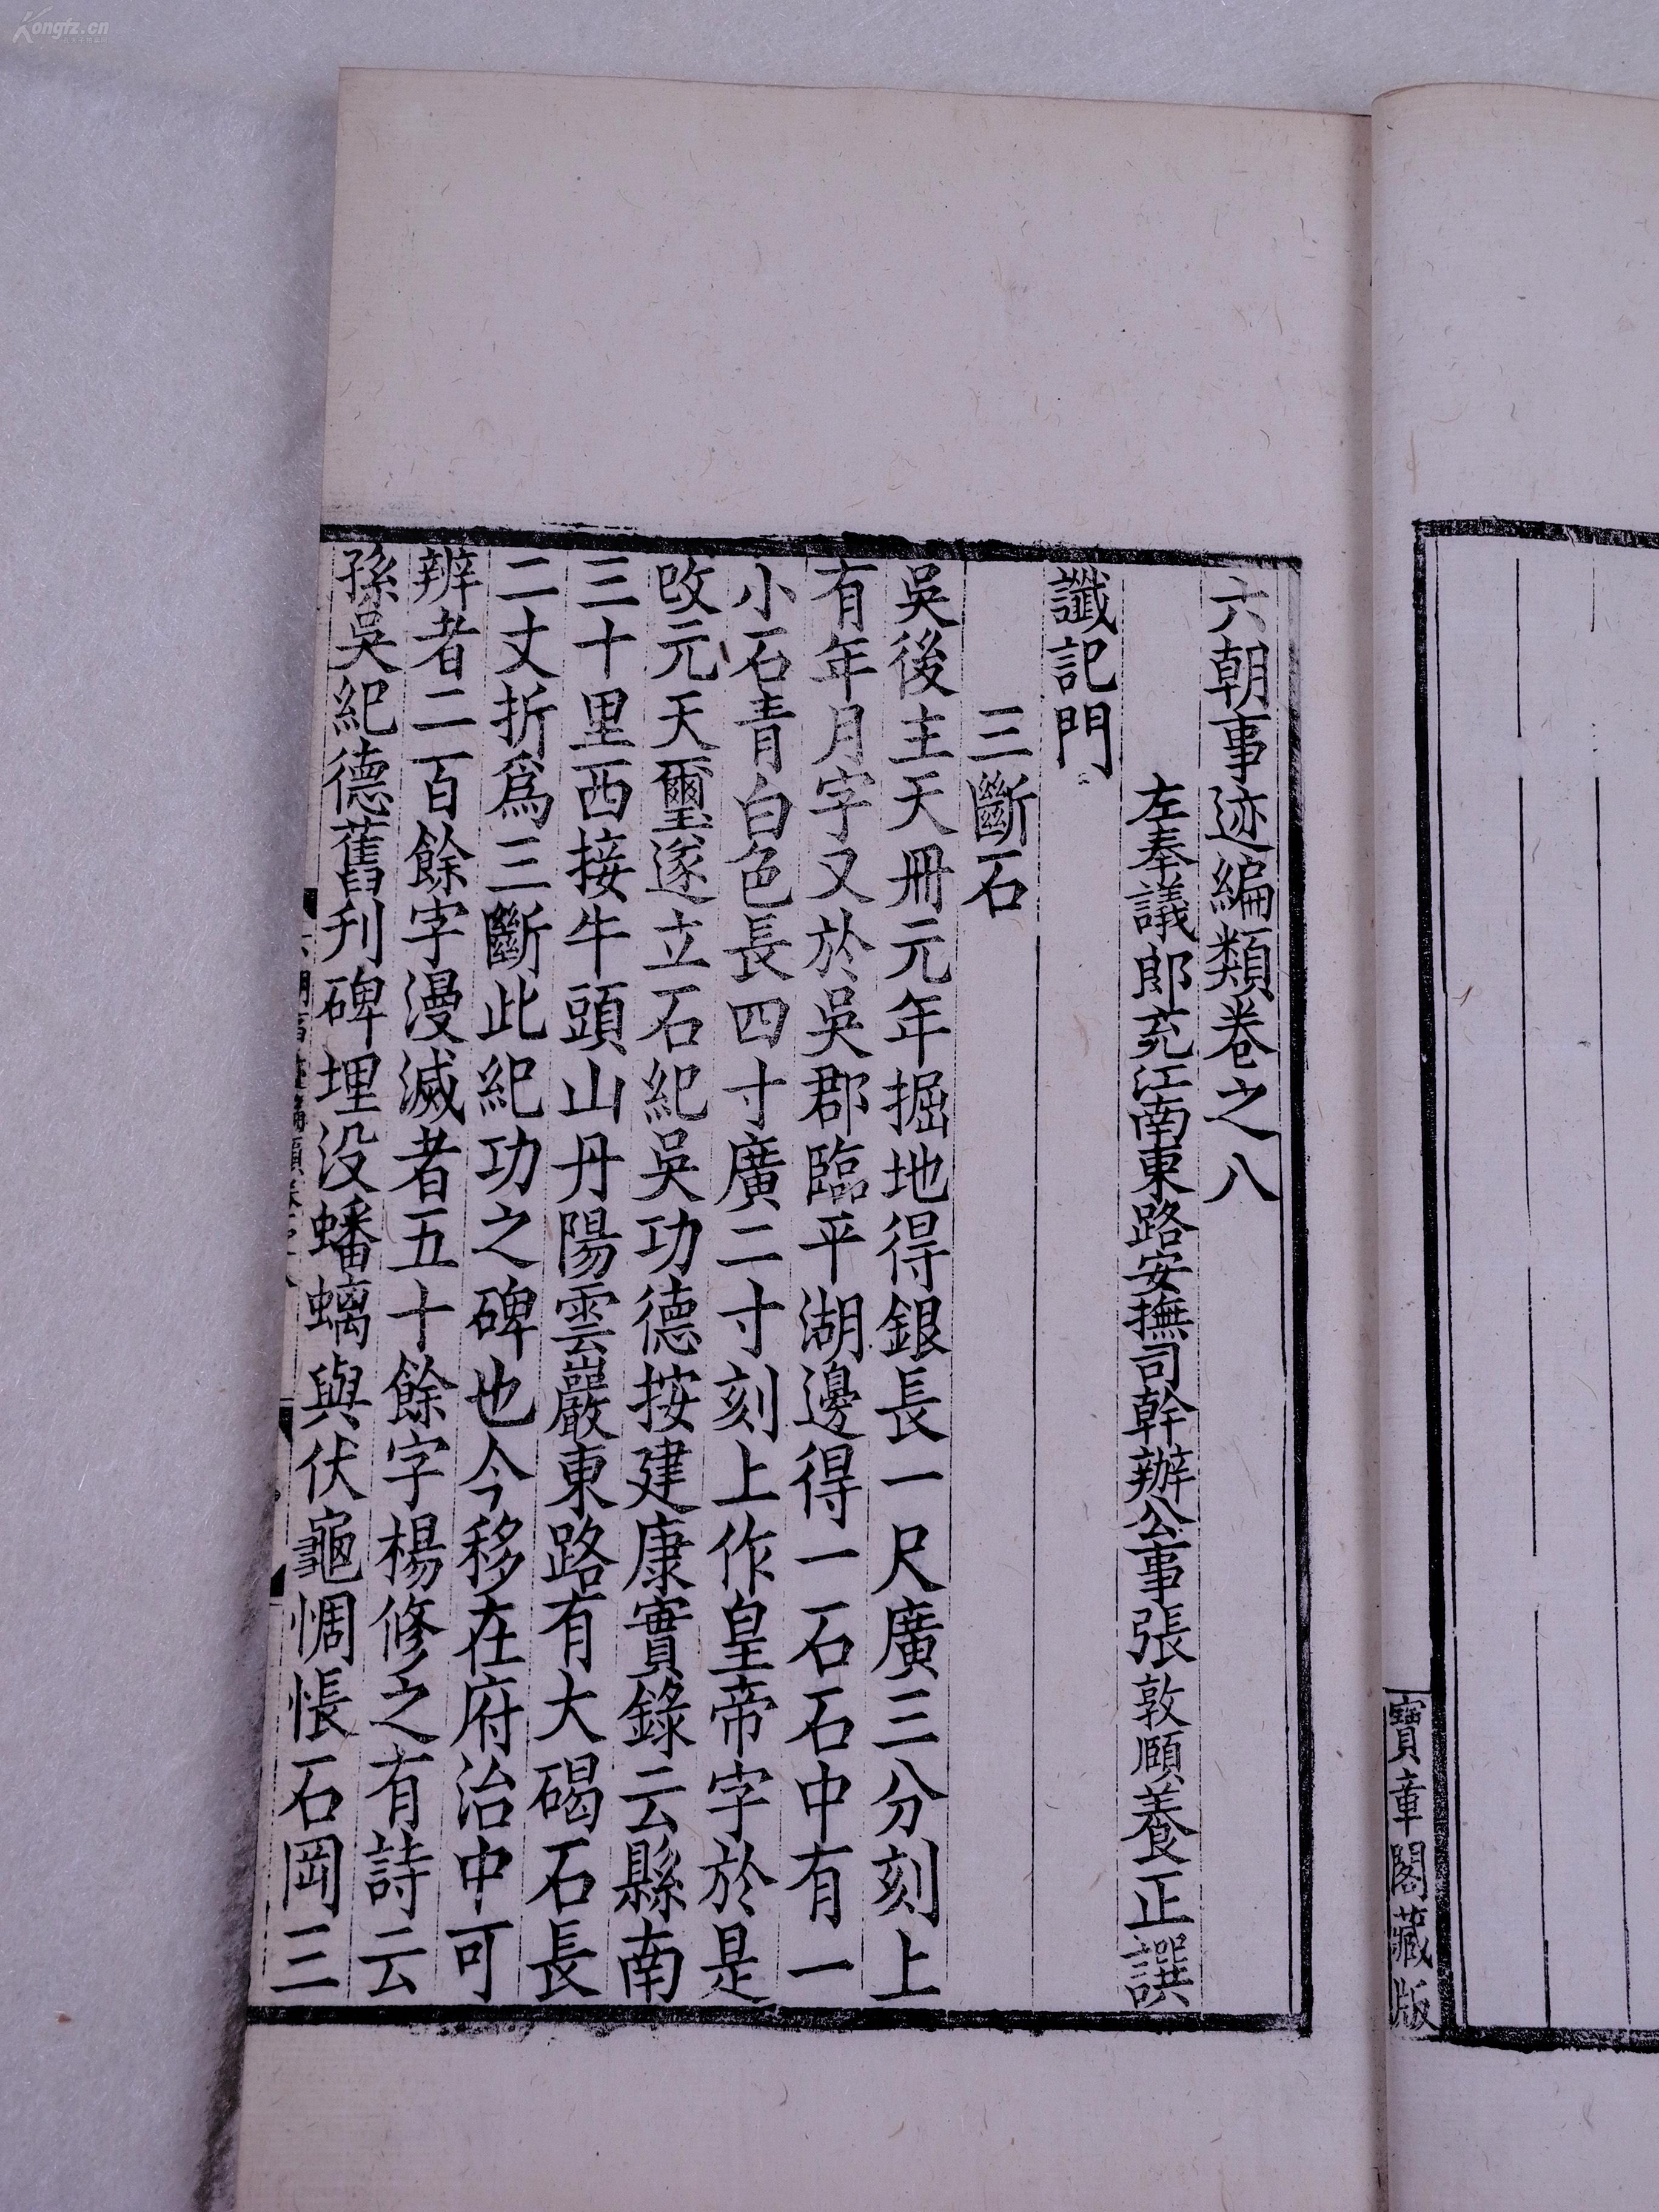 Kongfz.cn
寶章閣藏版
六朝事迹編類卷之八
左奉議郎充江南東路安撫司幹辦公事張敦頤養正譔
讖記門
三斷石
吳後主天冊元年掘地得銀長一尺廣三分刻上
有年月字又於吳郡臨平湖邊得一石石中有一
小石青白色長四寸廣二寸刻上作皇帝字於是
改元天璽遂立石紀吳功德按建康實錄云縣南
三十里西接牛頭山丹陽雲巖東路有大碣石長
二丈折爲三斷此紀功之碑也今移在府治中可
辨者二百餘字漫滅者五十餘字楊修之有詩云
孫吳紀德舊刋碑埋没蟠螭與伏龜惆悵石岡三